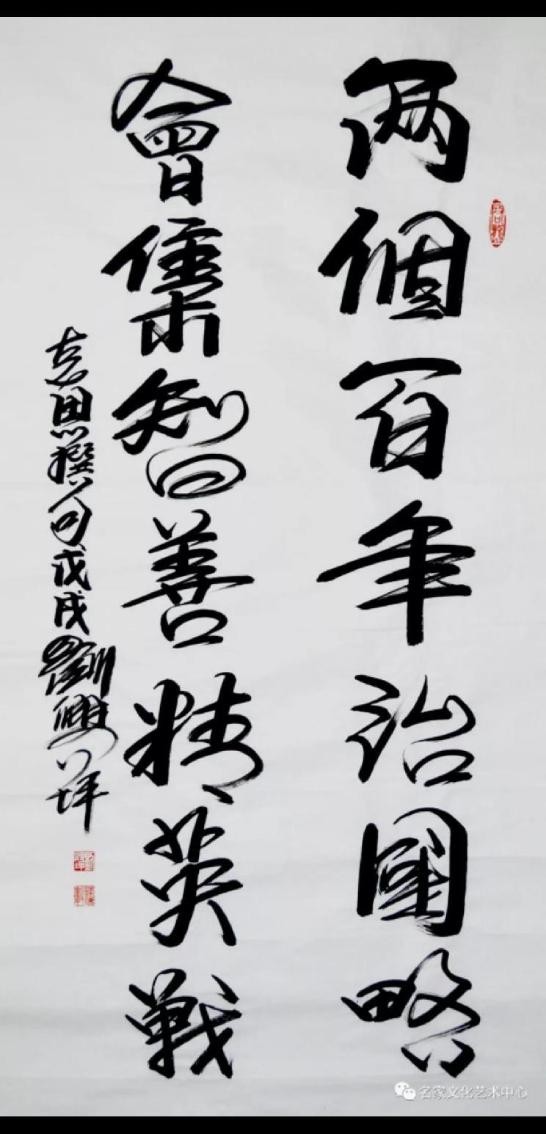 兩個百年治國略
會集智善精英戰
志思撰句戊戌劉興坪
名家文化艺术中心